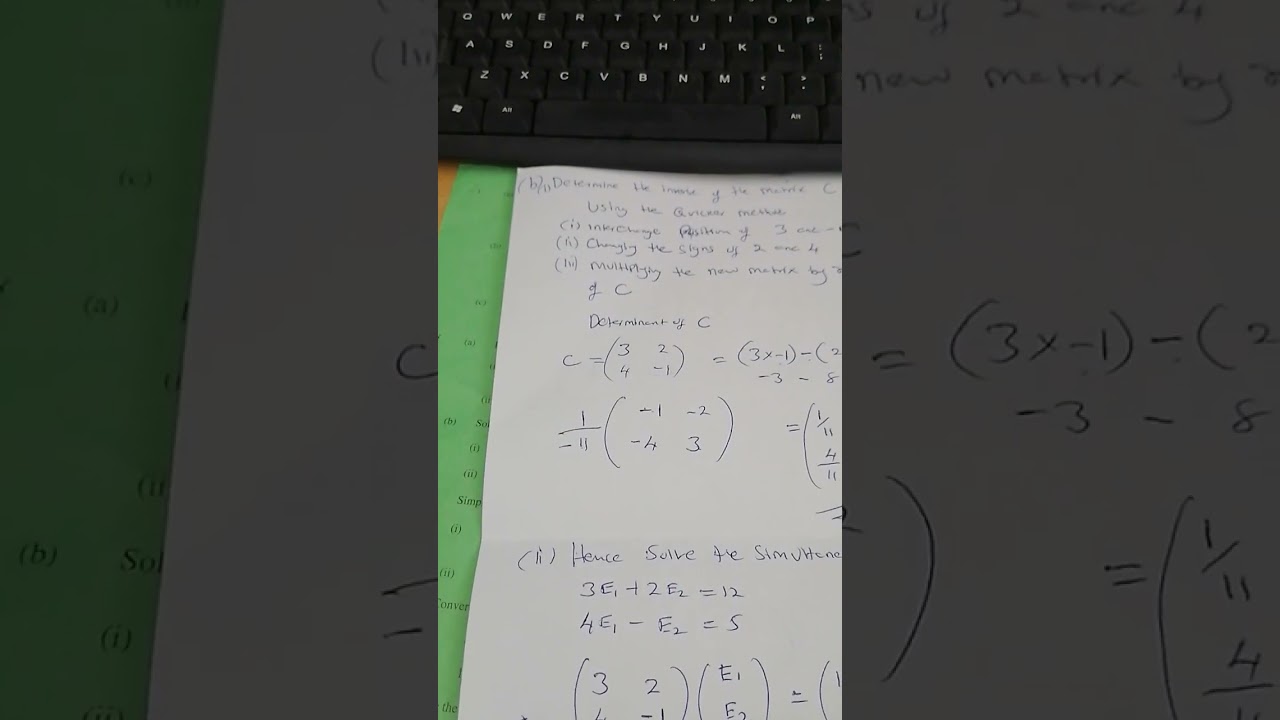 Q W E R T Y U I O P
A S D F G H J K L :
;
Z X C V B N M < >
, .
Alt Alt
(b) (i) Determine the inverse of the matrix C
Using the Quicker method
(i) Interchange Position of 3 and -1
(ii) Changing the signs of 2 and 4
(iii) Multiplying the new matrix by
of C
Determinant of C
C = (3 2
4 -1) = (3x-1) - (2
-3 - 8
1/-11 (-1 -2
-4 3) = (1/11
4/11
(ii) Hence Solve the Simultane
3E₁ + 2E₂ = 12
4E₁ - E₂ = 5
(3 2
4 -1) (E₁
E₂) = (1
(a)
(i)
(b) Sol
(i)
(ii)
Simp
(i)
(ii)
Conver
the
(c)
(a)
(b) Sol
(i)
(ii)
s of 2 and 4
(iii) new matrix by
C = (3x-1) - (2
-3 - 8
= (1/11
4/11